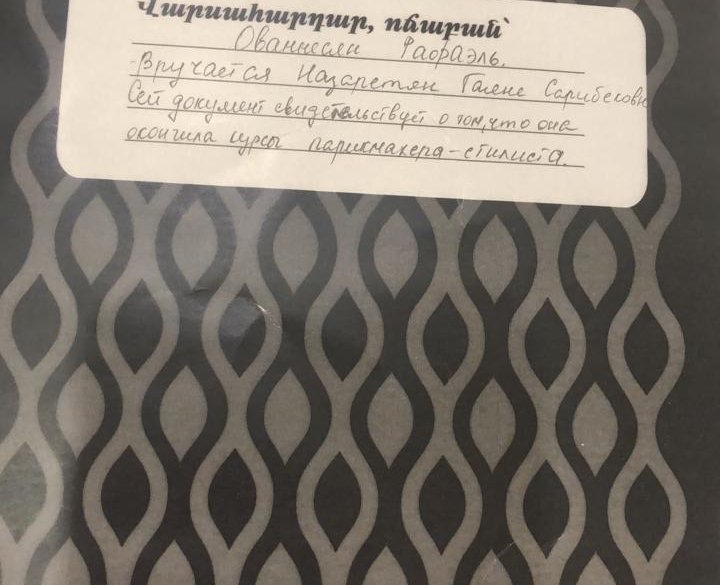 Վարսահարդար, ոճաբան՝
Ованнесян Рафаэль.
Вручается Назаретян Галене Сарибековн
Сей документ свидетельствует о том, что она
окончила курсы парикмахера-стилиста.